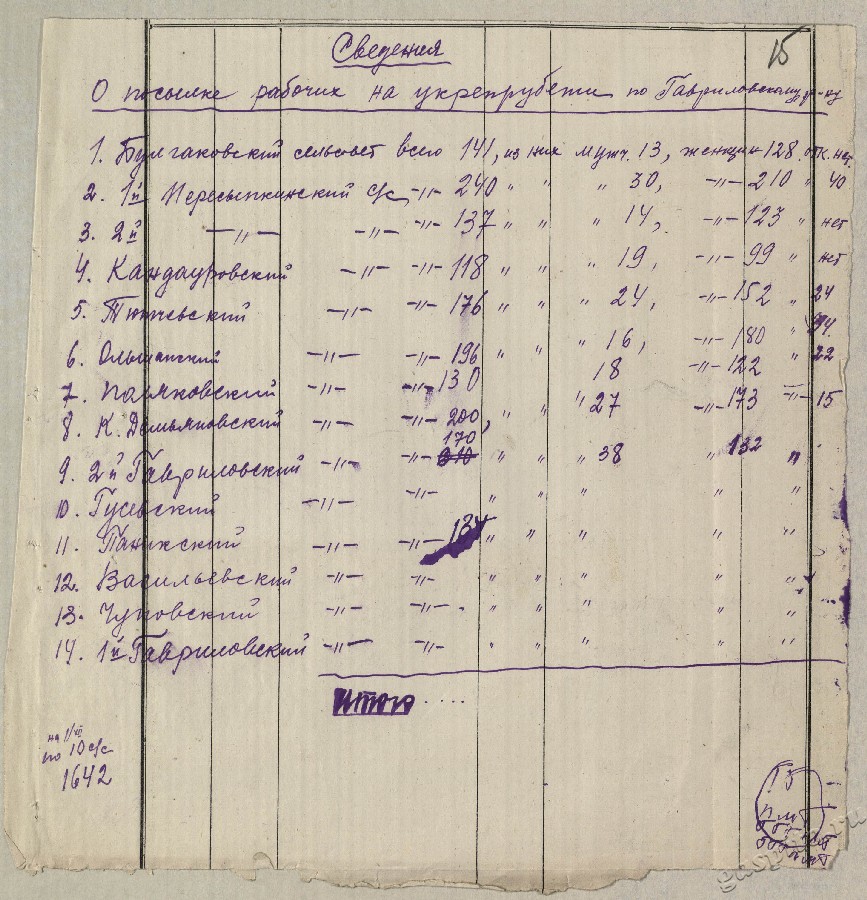 15
Сведения
О посылке рабочих на укрепрубежи по Гавриловскому р-ну
1. Булгаковский сельсовет всего 141, из них мужч. 13, женщин 128. отк. нет.
2. 1й Пересыпкинский с/с -"- 240 " " " 30, -"- 210 " 40
3. 2й -"- -"- -"- 137 " " " 14, -"- 123 " нет
4. Кандауровский -"- -"- 118 " " " 19, -"- 99 " нет
5. Тютчевский -"- -"- 176 " " " 24, -"- 152 " 24
6. Ольшанский -"- -"- 196 " " " 16, -"- 180 " 24.
7. Поляковский -"- -"- 130 18 -"- 122 " 22
8. К. Демьяновский -"- -"- 200, " " 27 -"- 173 -"- 15
170
9. 2й Гавриловский -"- -"- " " " 38 " 132 "
10. Гусевский -"- -"- " " " " "
11. Паникский -"- -"- 134 " " " " "
12. Васильевский -"- -"- " " " " "
13. Чуповский -"- -"- " " " " "
14. 1й Гавриловский -"- -"- " " " " "
Итого ....
на 1/VIII
по 10 с/с
1642
15